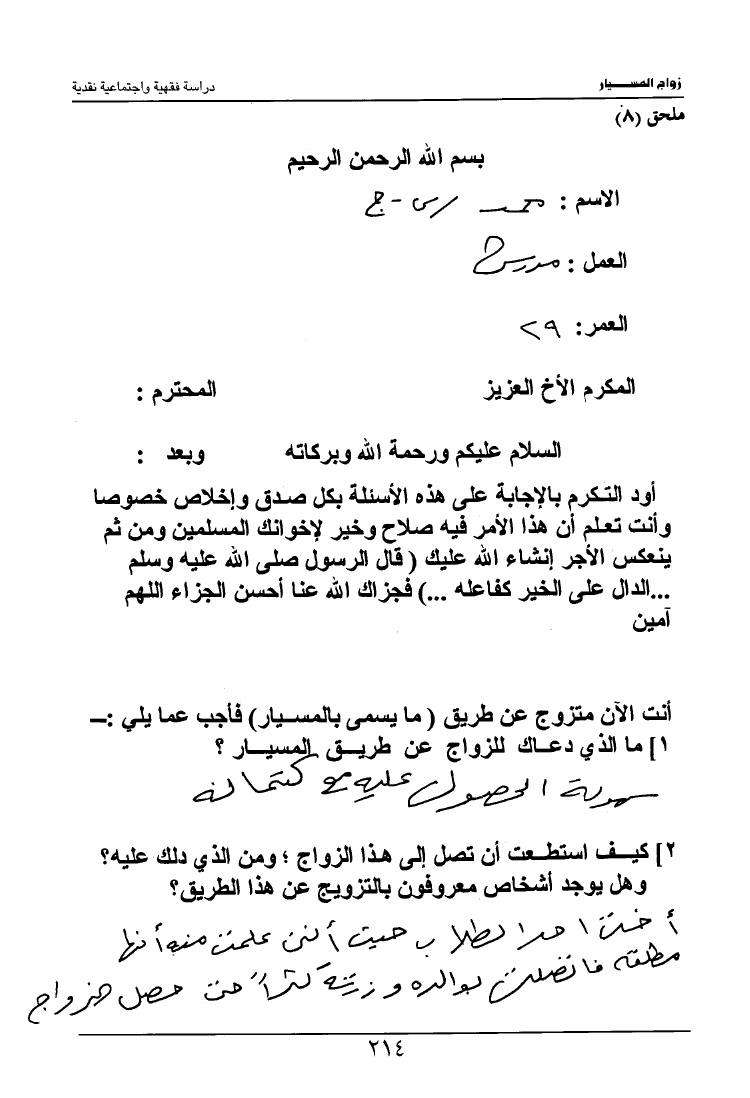 زواج المسيار
دراسة فقهية واجتماعية نقدية
ملحق (٨)
بسم الله الرحمن الرحيم
الاسم : محمد س - ج
العمل : مدرس
العمر : ٢٩
المكرم الأخ العزيز المحترم :
السلام عليكم ورحمة الله وبركاته وبعد :
أود التكرم بالإجابة على هذه الأسئلة بكل صدق وإخلاص خصوصا
وأنت تعلم أن هذا الأمر فيه صلاح وخير لإخوانك المسلمين ومن ثم
ينعكس الأجر إنشاء الله عليك ( قال الرسول صلى الله عليه وسلم
...الدال على الخير كفاعله ...) فجزاك الله عنا أحسن الجزاء اللهم
آمين
أنت الآن متزوج عن طريق ( ما يسمى بالمسيار) فأجب عما يلي :ـ
١] ما الذي دعاك للزواج عن طريق المسيار ؟
سهولة الحصول عليه مع كتمانه
٢] كيف استطعت أن تصل إلى هذا الزواج ؛ ومن الذي دلك عليه؟
وهل يوجد أشخاص معروفون بالتزويج عن هذا الطريق؟
أخت احد الطلاب حيث أنني علمت منه أنها
مطلقه فاتصلت بوالده و كثراً حتى حصل الزواج
٢١٤